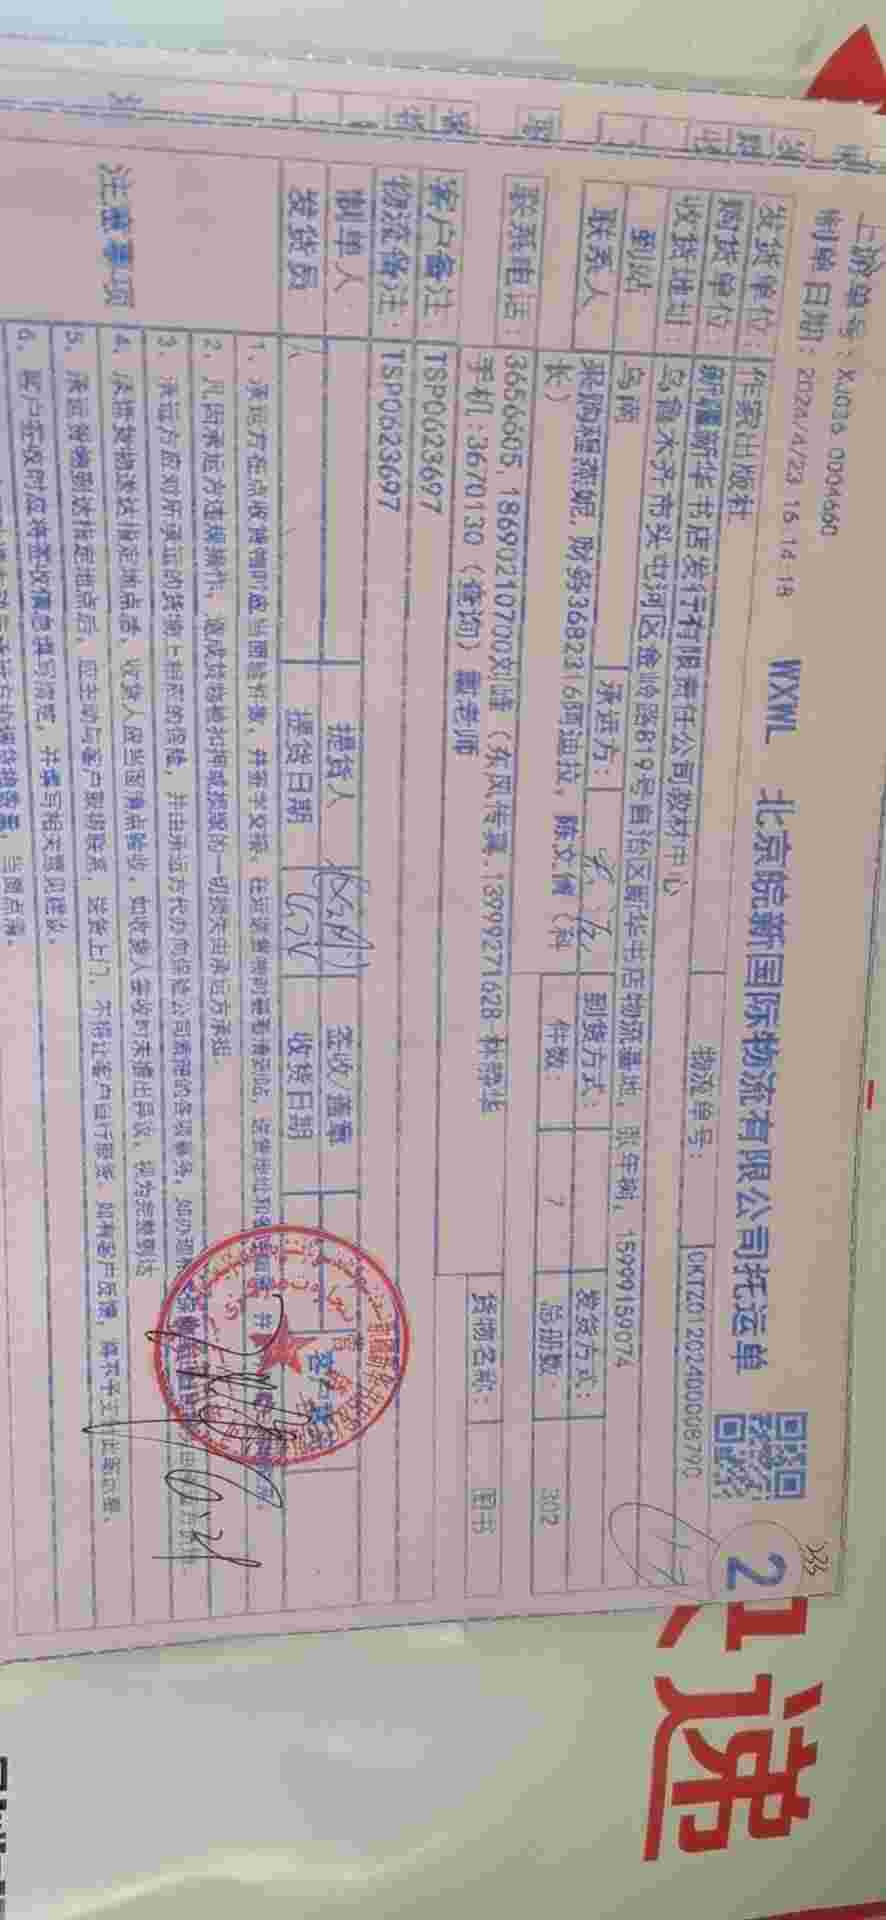 上游单号：XJ036 0004660
制单日期：2024/4/23 16:14:18
WXWL 北京皖新国际物流有限公司托运单
2
发货单位： 作家出版社
物流单号： CKTZ01202400008790
购货单位： 新疆新华书店发行有限责任公司教材中心
收货地址： 乌鲁木齐市头屯河区金岭路819号自治区新华书店物流基地，张年树，15999159074
到站 乌南 承运方： 到货方式： 发货方式：
联系人 采购程杰妮，财务3682316阿迪拉，陈文倩（科长） 件数： 7 总册数： 302
联系电话： 3656605，18690210700刘峰（东风传真-13999271628-林静华
手机：3670130（查询）戴老师 货物名称： 图书
客户备注： TSP0623697
物流备注： TSP0623697
制单人 提货人 签收/盖章
发货员 提货日期 收货日期
注意事项
1、承运方在点收货物时应当面验件数，并签字交接。在
2、凡因承运方违规操作，造成货物被扣押或损毁的一切损失由承运方承担。
3、承运方应对所承运的货物上相应的保险，并由承运方代办向保险公司索赔的各项事务，如
4、承运货物送达指定地点后，收货人应当面清点验收，如收货人签收时未提出异议，视为完整到达
5、承运货物到达指定地点后，应主动与客户取得联系，送货上门，不得让客户自行提货。如有客户反馈，将不予支付此笔运费。
6、客户签收时应将签收信息填写清楚，并填写相关意见建议。
当面点清。
快递